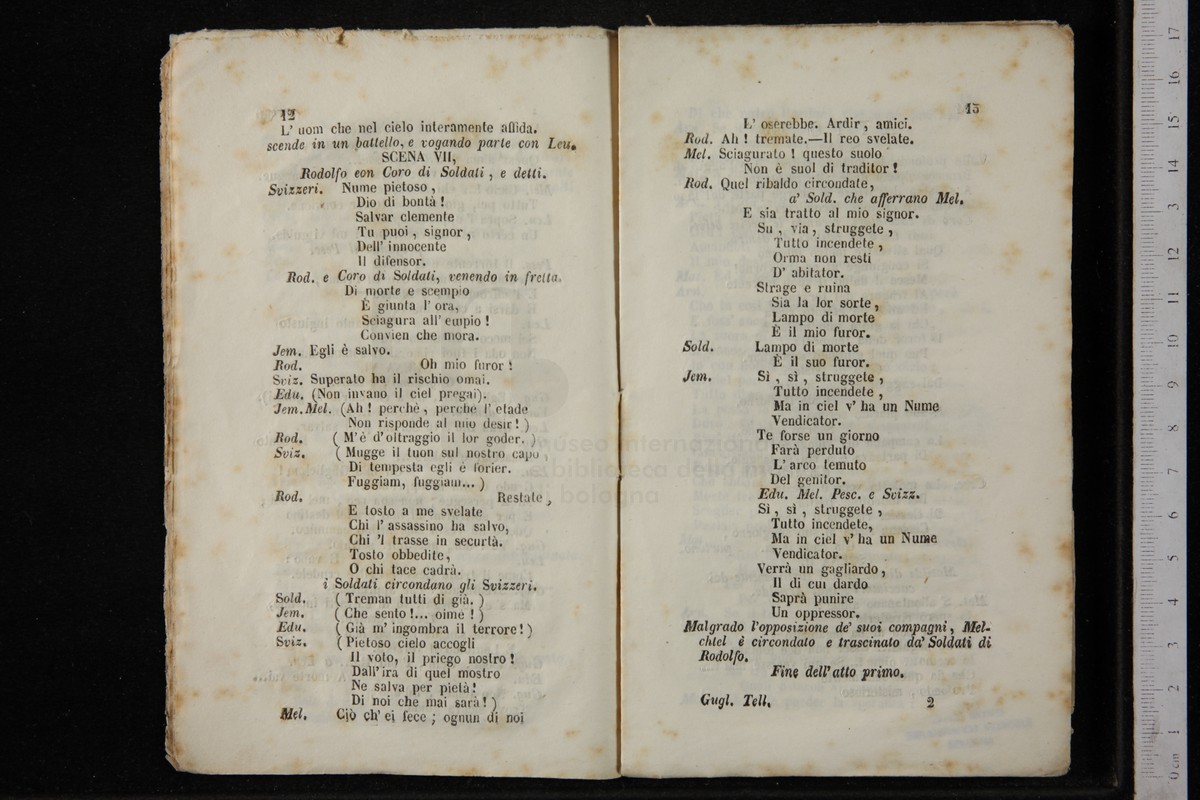 12
L' uom che nel cielo interamente affida.
scende in un battello, e vogando parte con Leu.
SCENA VII,
Rodolfo eon Coro di Soldati, e detti.
Svizzeri. Nume pietoso,
Dio di bontà!
Salvar clemente
Tu puoi, signor,
Dell' innocente
Il difensor.
Rod. e Coro di Soldati, venendo in fretta.
Di morte e scempio
È giunta l' ora,
Sciagura all' empio!
Convien che mora.
Jem. Egli è salvo.
Rod. Oh mio furor!
Sviz. Superato ha il rischio omai.
Edu. (Non invano il ciel pregai).
Jem. Mel. (Ah! perchè, perchè l' etade
Non risponde al mio desir!)
Rod. (M'è d'oltraggio il lor goder.)
Sviz. (Mugge il tuon sul nostro capo,
Di tempesta egli è forier.
Fuggiam, fuggiam...)
Rod. Restate,
E tosto a me svelate
Chi l' assassino ha salvo,
Chi 'l trasse in securtà.
Tosto obbedite,
O chi tace cadrà.
i Soldati circondano gli Svizzeri.
Sold. (Treman tutti di già.)
Jem. (Che sento!... oime!)
Edu. (Già m' ingombra il terrore!)
Sviz. (Pietoso cielo accogli
Il voto, il priego nostro!
Dall' ira di quel mostro
Ne salva per pietà!
Di noi che mai sarà!)
Mel. Ciò ch' ei fece; ognun di noi
13
L' oserebbe. Ardir, amici.
Rod. Ah! tremate.—Il reo svelate.
Mel. Sciagurato! questo suolo
Non è suol di traditor!
Rod. Quel ribaldo circondate,
a' Sold. che afferrano Mel.
E sia tratto al mio signor.
Su, via, struggete,
Tutto incendete,
Orma non resti
D' abitator.
Strage e ruina
Sia la lor sorte,
Lampo di morte
È il mio furor.
Sold. Lampo di morte
È il suo furor.
Jem. Sì, sì, struggete,
Tutto incendete,
Ma in ciel v' ha un Nume
Vendicator.
Te forse un giorno
Farà perduto
L' arco temuto
Del genitor.
Edu. Mel. Pesc. e Svizz.
Sì, sì, struggete,
Tutto incendete,
Ma in ciel v' ha un Nume
Vendicator.
Verrà un gagliardo,
Il di cui dardo
Saprà punire
Un oppressor.
Malgrado l'opposizione de' suoi compagni, Mel-
chtel è circondato e trascinato da' Soldati di
Rodolfo.
Fine dell' atto primo.
Gugl. Tell. 2
museo internazionale
e biblioteca della musica
di bologna
0 cm 1 2 3 4 5 6 7 8 9 10 11 12 13 14 15 16 17